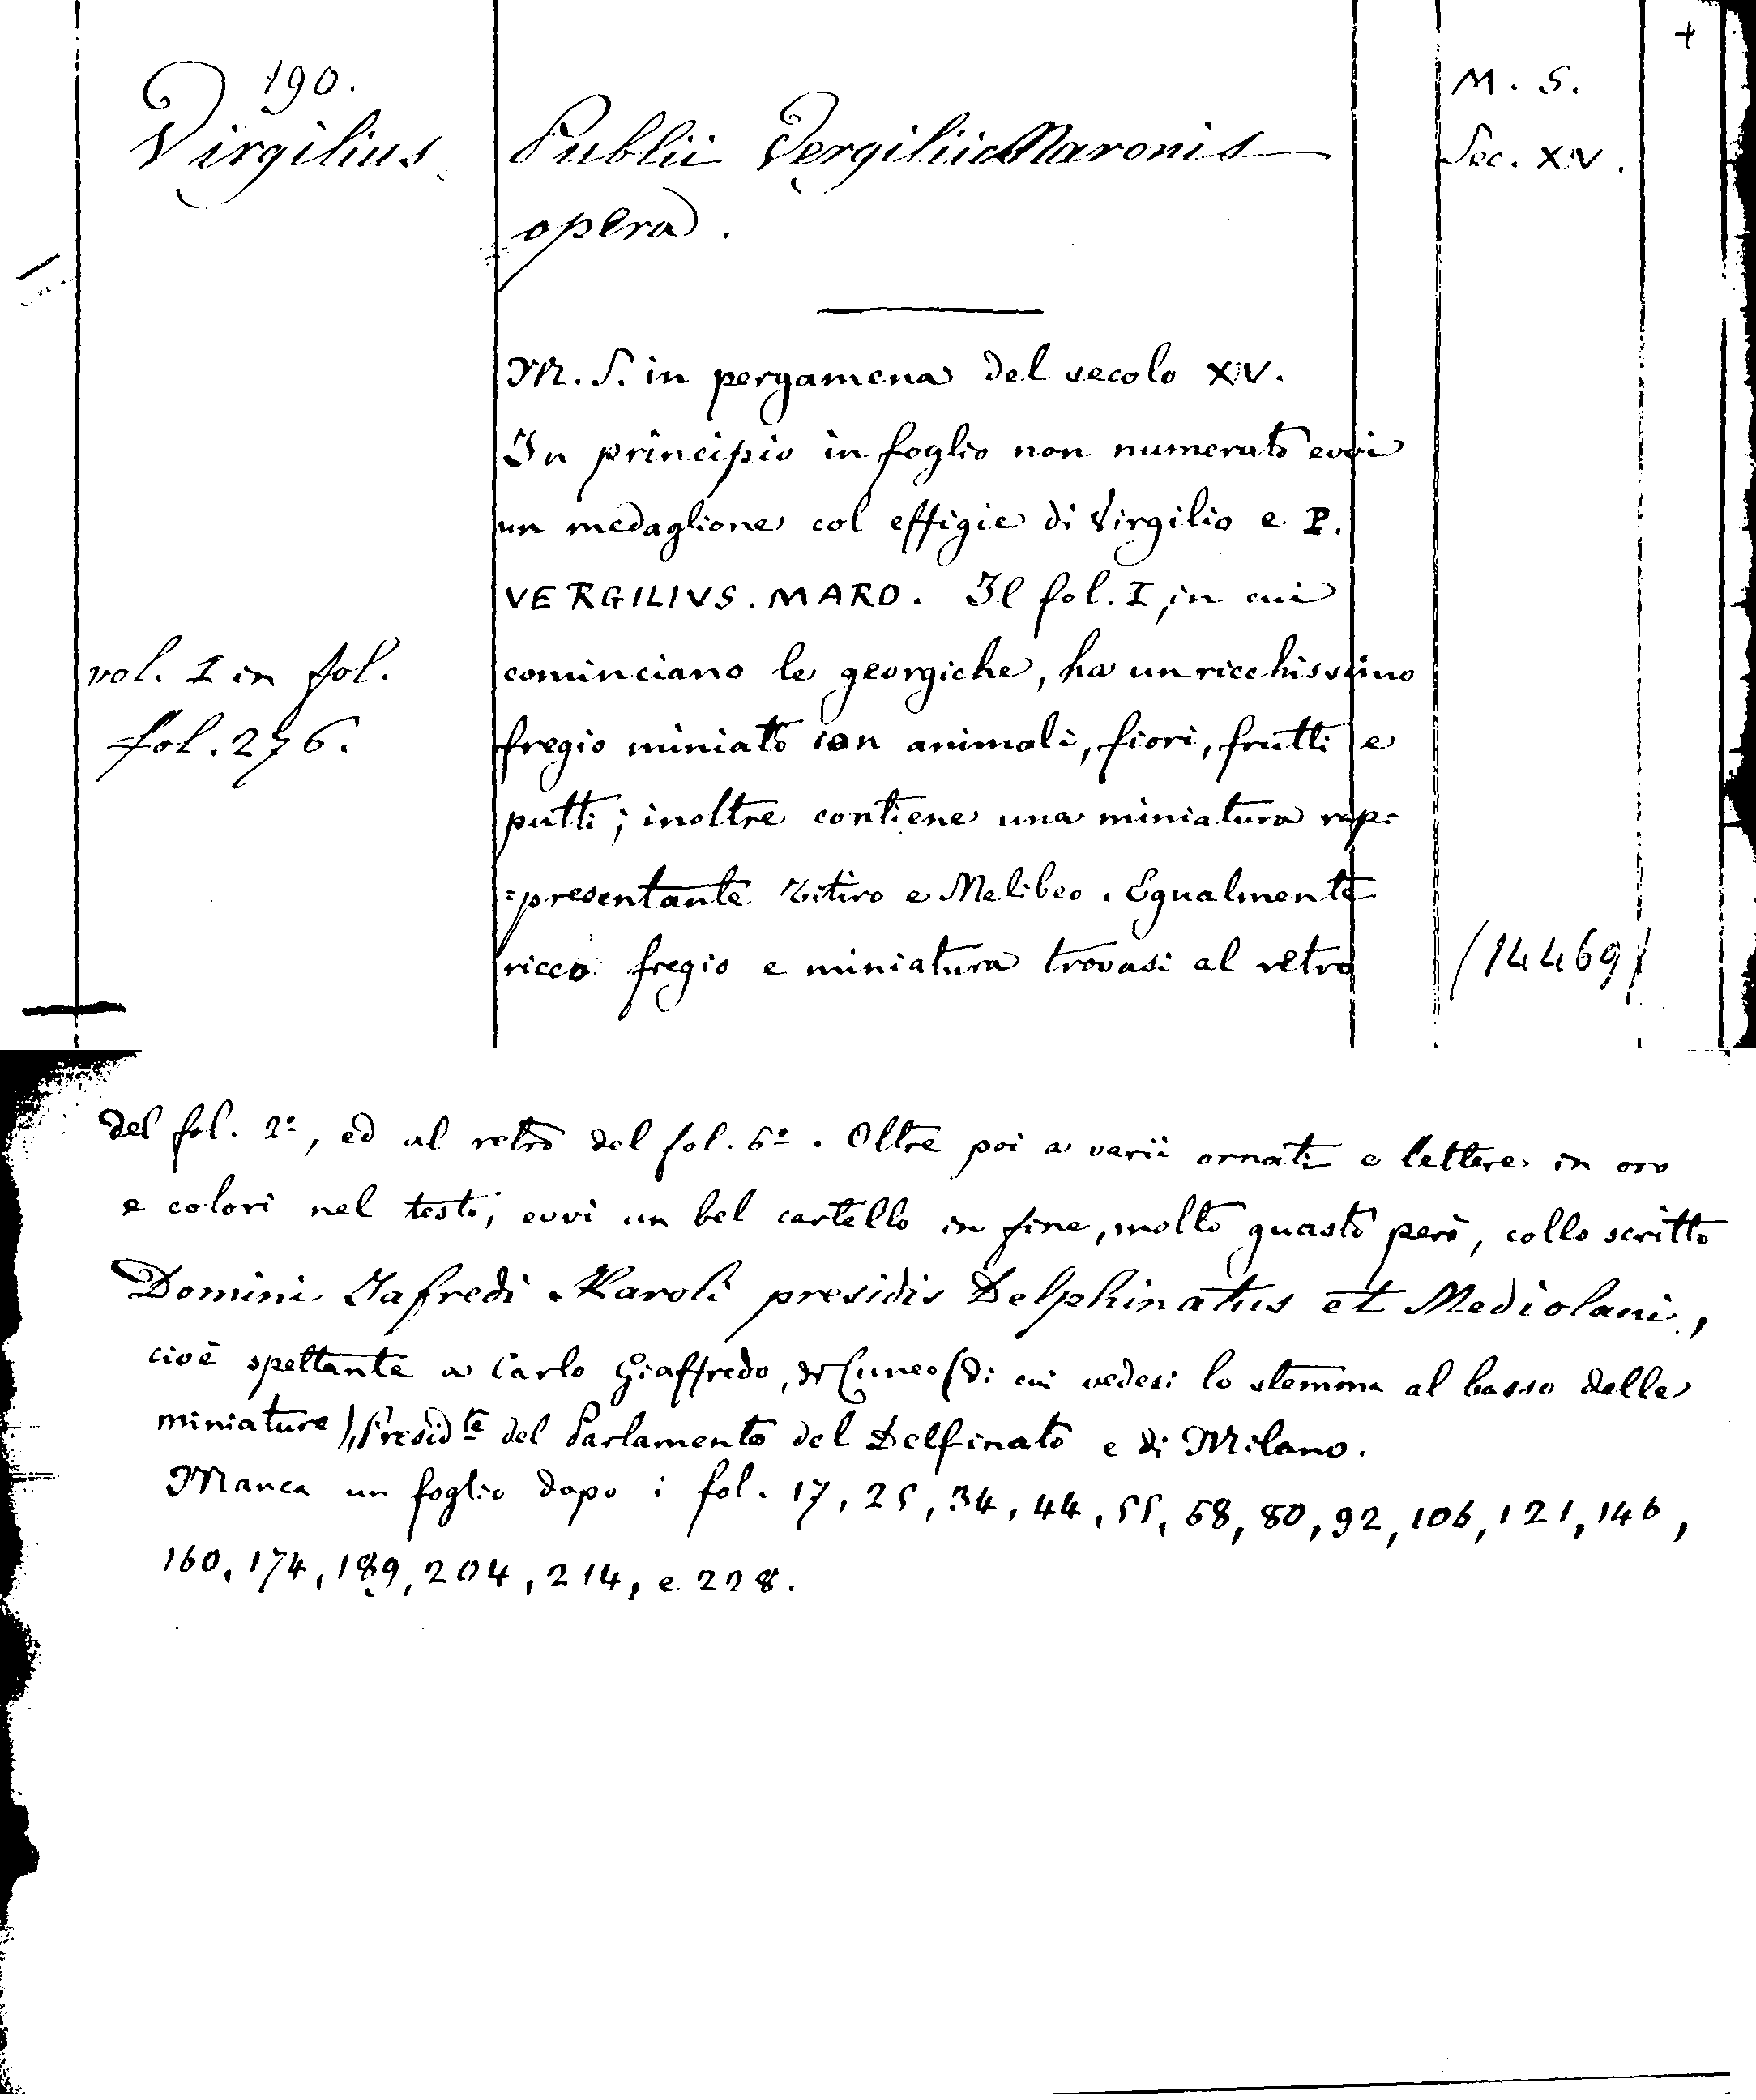 190.
Virgilius
Publii Vergilii Maronis
opera.
M. S.
Sec. XV.
vol. I in fol.
fol. 276.
M. S. in pergamena del secolo XV.
In principio in foglio non numerato evvi
un medaglione col effigie di Virgilio e P.
VERGILIVS. MARO. Il fol. I, in cui
cominciano le georgiche, ha un ricchissimo
fregio miniato con animali, fiori, frutti e
putti; inoltre contiene una miniatura rap=
=presentante Titiro e Melibeo. Egualmente
ricco fregio e miniatura trovasi al retro
(14469)
del fol. 2º, ed al retro del fol. 6º. Oltre poi a varii ornati e lettere in oro
e colori nel testo; evvi un bel cartello in fine, molto guasto però, collo scritto
Domini Jafredi Karoli presidis Delphinatus et Mediolani,
cioè spettante a Carlo Giaffredo, di Cuneo (di cui vedesi lo stemma al basso delle
miniature), Presid.te del Parlamento del Delfinato e di Milano.
Manca un foglio dopo i fol. 17, 25, 34, 44, 55, 68, 80, 92, 106, 121, 146,
160, 174, 189, 204, 214, e 228.